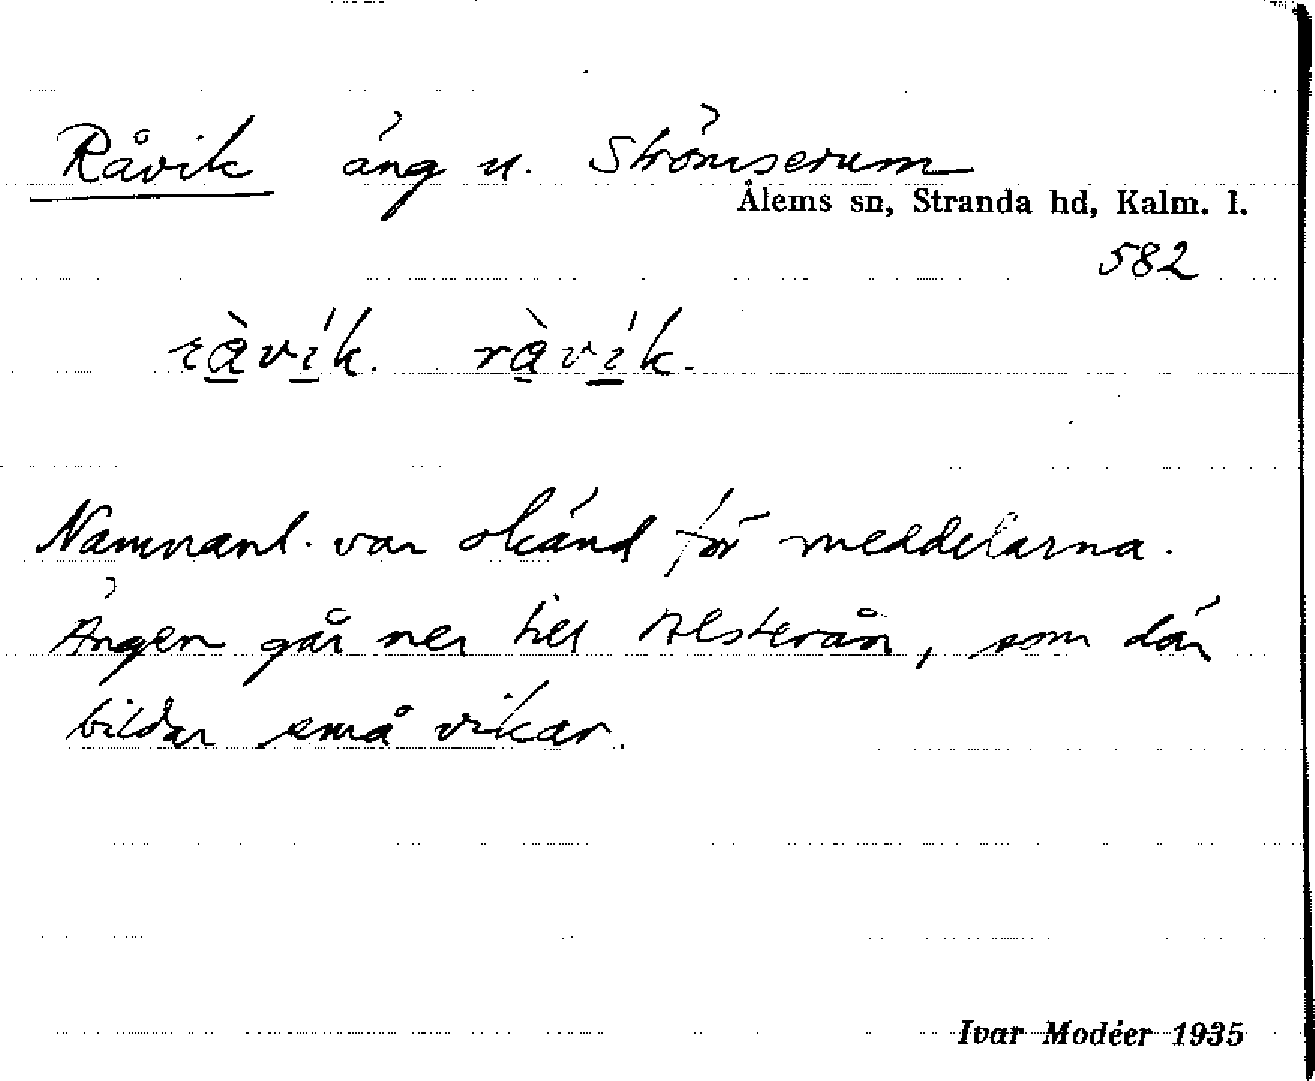 Råvik äng u. Strömserum
Ålems sn, Stranda hd, Kalm. l.
582
ràvík. ràvík.
Namnanl. var okänd för meddelarna.
Ängen går ner till Alsterån, som där
bildar små vikar.
Ivar Modéer 1935